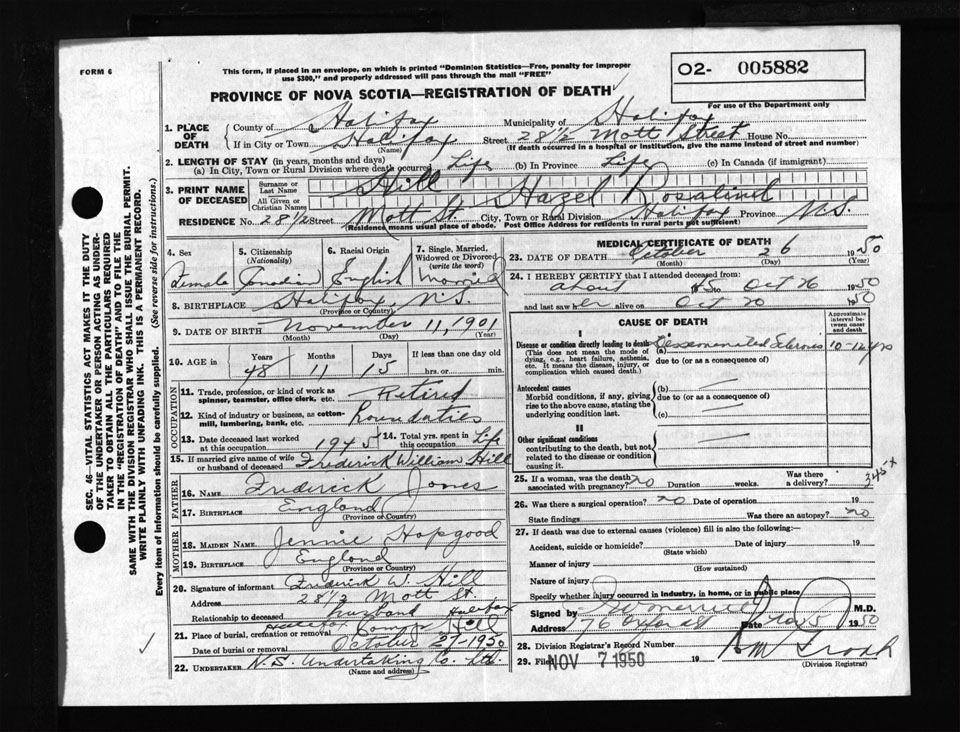 FORM 6
This form, if placed in an envelope, on which is printed "Dominion Statistics—Free, penalty for improper
use $300," and properly addressed will pass through the mail "FREE"
PROVINCE OF NOVA SCOTIA—REGISTRATION OF DEATH
O2- 005882
For use of the Department only
1. PLACE OF DEATH
County of Halifax Municipality of Halifax
If in City or Town Halifax Street 28½ Mott Street House No.
(Name) (If death occurred in a hospital or institution, give the name instead of street and number)
2. LENGTH OF STAY (in years, months and days)
(a) In City, Town or Rural Division where death occurred Life (b) In Province Life (c) In Canada (if immigrant)
3. PRINT NAME OF DECEASED
Surname or Last Name Hill
All Given or Christian Names Hazel Rosalind
RESIDENCE No. 28½ Street Mott St. City, Town or Rural Division Halifax Province N.S.
(Residence means usual place of abode. Post Office Address for residents in rural parts not sufficient)
4. Sex Female
5. Citizenship (Nationality) Canadian
6. Racial Origin English
7. Single, Married, Widowed or Divorced (write the word) Married
8. BIRTHPLACE Halifax, N.S.
(Province or Country)
9. DATE OF BIRTH November 11, 1901
(Month) (Day) (Year)
10. AGE in Years Months Days If less than one day old
48 11 15 hrs. or min.
OCCUPATION
11. Trade, profession, or kind of work as spinner, teamster, office clerk, etc. Retired
12. Kind of industry or business, as cotton-mill, lumbering, bank, etc.
13. Date deceased last worked at this occupation 1945
14. Total yrs. spent in this occupation Life
15. If married give name of wife or husband of deceased Frederick William Hill
FATHER
16. NAME Fredrick Jones
17. BIRTHPLACE England
(Province or Country)
MOTHER
18. MAIDEN NAME Jennie Hopgood
19. BIRTHPLACE England
(Province or Country)
20. Signature of informant Frederick W. Hill
Address 28½ Mott St.
Relationship to deceased husband Halifax
21. Place of burial, cremation or removal Halifax Camp Hill
Date of burial or removal October 27-1950
22. UNDERTAKER N.S. Undertaking Co. Ltd.
(Name and address)
MEDICAL CERTIFICATE OF DEATH
23. DATE OF DEATH October 26 1950
(Month) (Day) (Year)
24. I HEREBY CERTIFY that I attended deceased from:
about to Oct 26 1950
and last saw her alive on Oct 20 1950
CAUSE OF DEATH
Approximate interval between onset and death
I
Disease or condition directly leading to death (a) Desseminated Sclerosis 10-12 yrs
(This does not mean the mode of dying, e.g., heart failure, asthenia, etc. It means the disease, injury, or complication which caused death.)
due to (or as a consequence of)
Antecedent causes (b)
Morbid conditions, if any, giving rise to the above cause, stating the underlying condition last.
due to (or as a consequence of)
(c)
II
Other significant conditions
contributing to the death, but not related to the disease or condition causing it.
345x
25. If a woman, was the death associated with pregnancy? no Duration weeks. Was there a delivery?
26. Was there a surgical operation? no Date of operation 19
State findings Was there an autopsy? no
27. If death was due to external causes (violence) fill in also the following:—
Accident, suicide or homicide? Date of injury 19
(State which)
Manner of injury
(How sustained)
Nature of injury
Specify whether injury occurred in industry, in home, or in public place
Signed by M.D.
Address 76 Oxford St Date Nov 5 1950
28. Division Registrar's Record Number
29. Filed NOV 7 1950 19
(Division Registrar)
SEC. 46—VITAL STATISTICS ACT MAKES IT THE DUTY
OF THE UNDERTAKER OR PERSON ACTING AS UNDER-
TAKER TO OBTAIN ALL THE PARTICULARS REQUIRED
IN THE "REGISTRATION OF DEATH" AND TO FILE THE
SAME WITH THE DIVISION REGISTRAR WHO SHALL ISSUE THE BURIAL PERMIT.
WRITE PLAINLY WITH UNFADING INK. THIS IS A PERMANENT RECORD.
Every item of information should be carefully supplied. (See reverse side for instructions.)